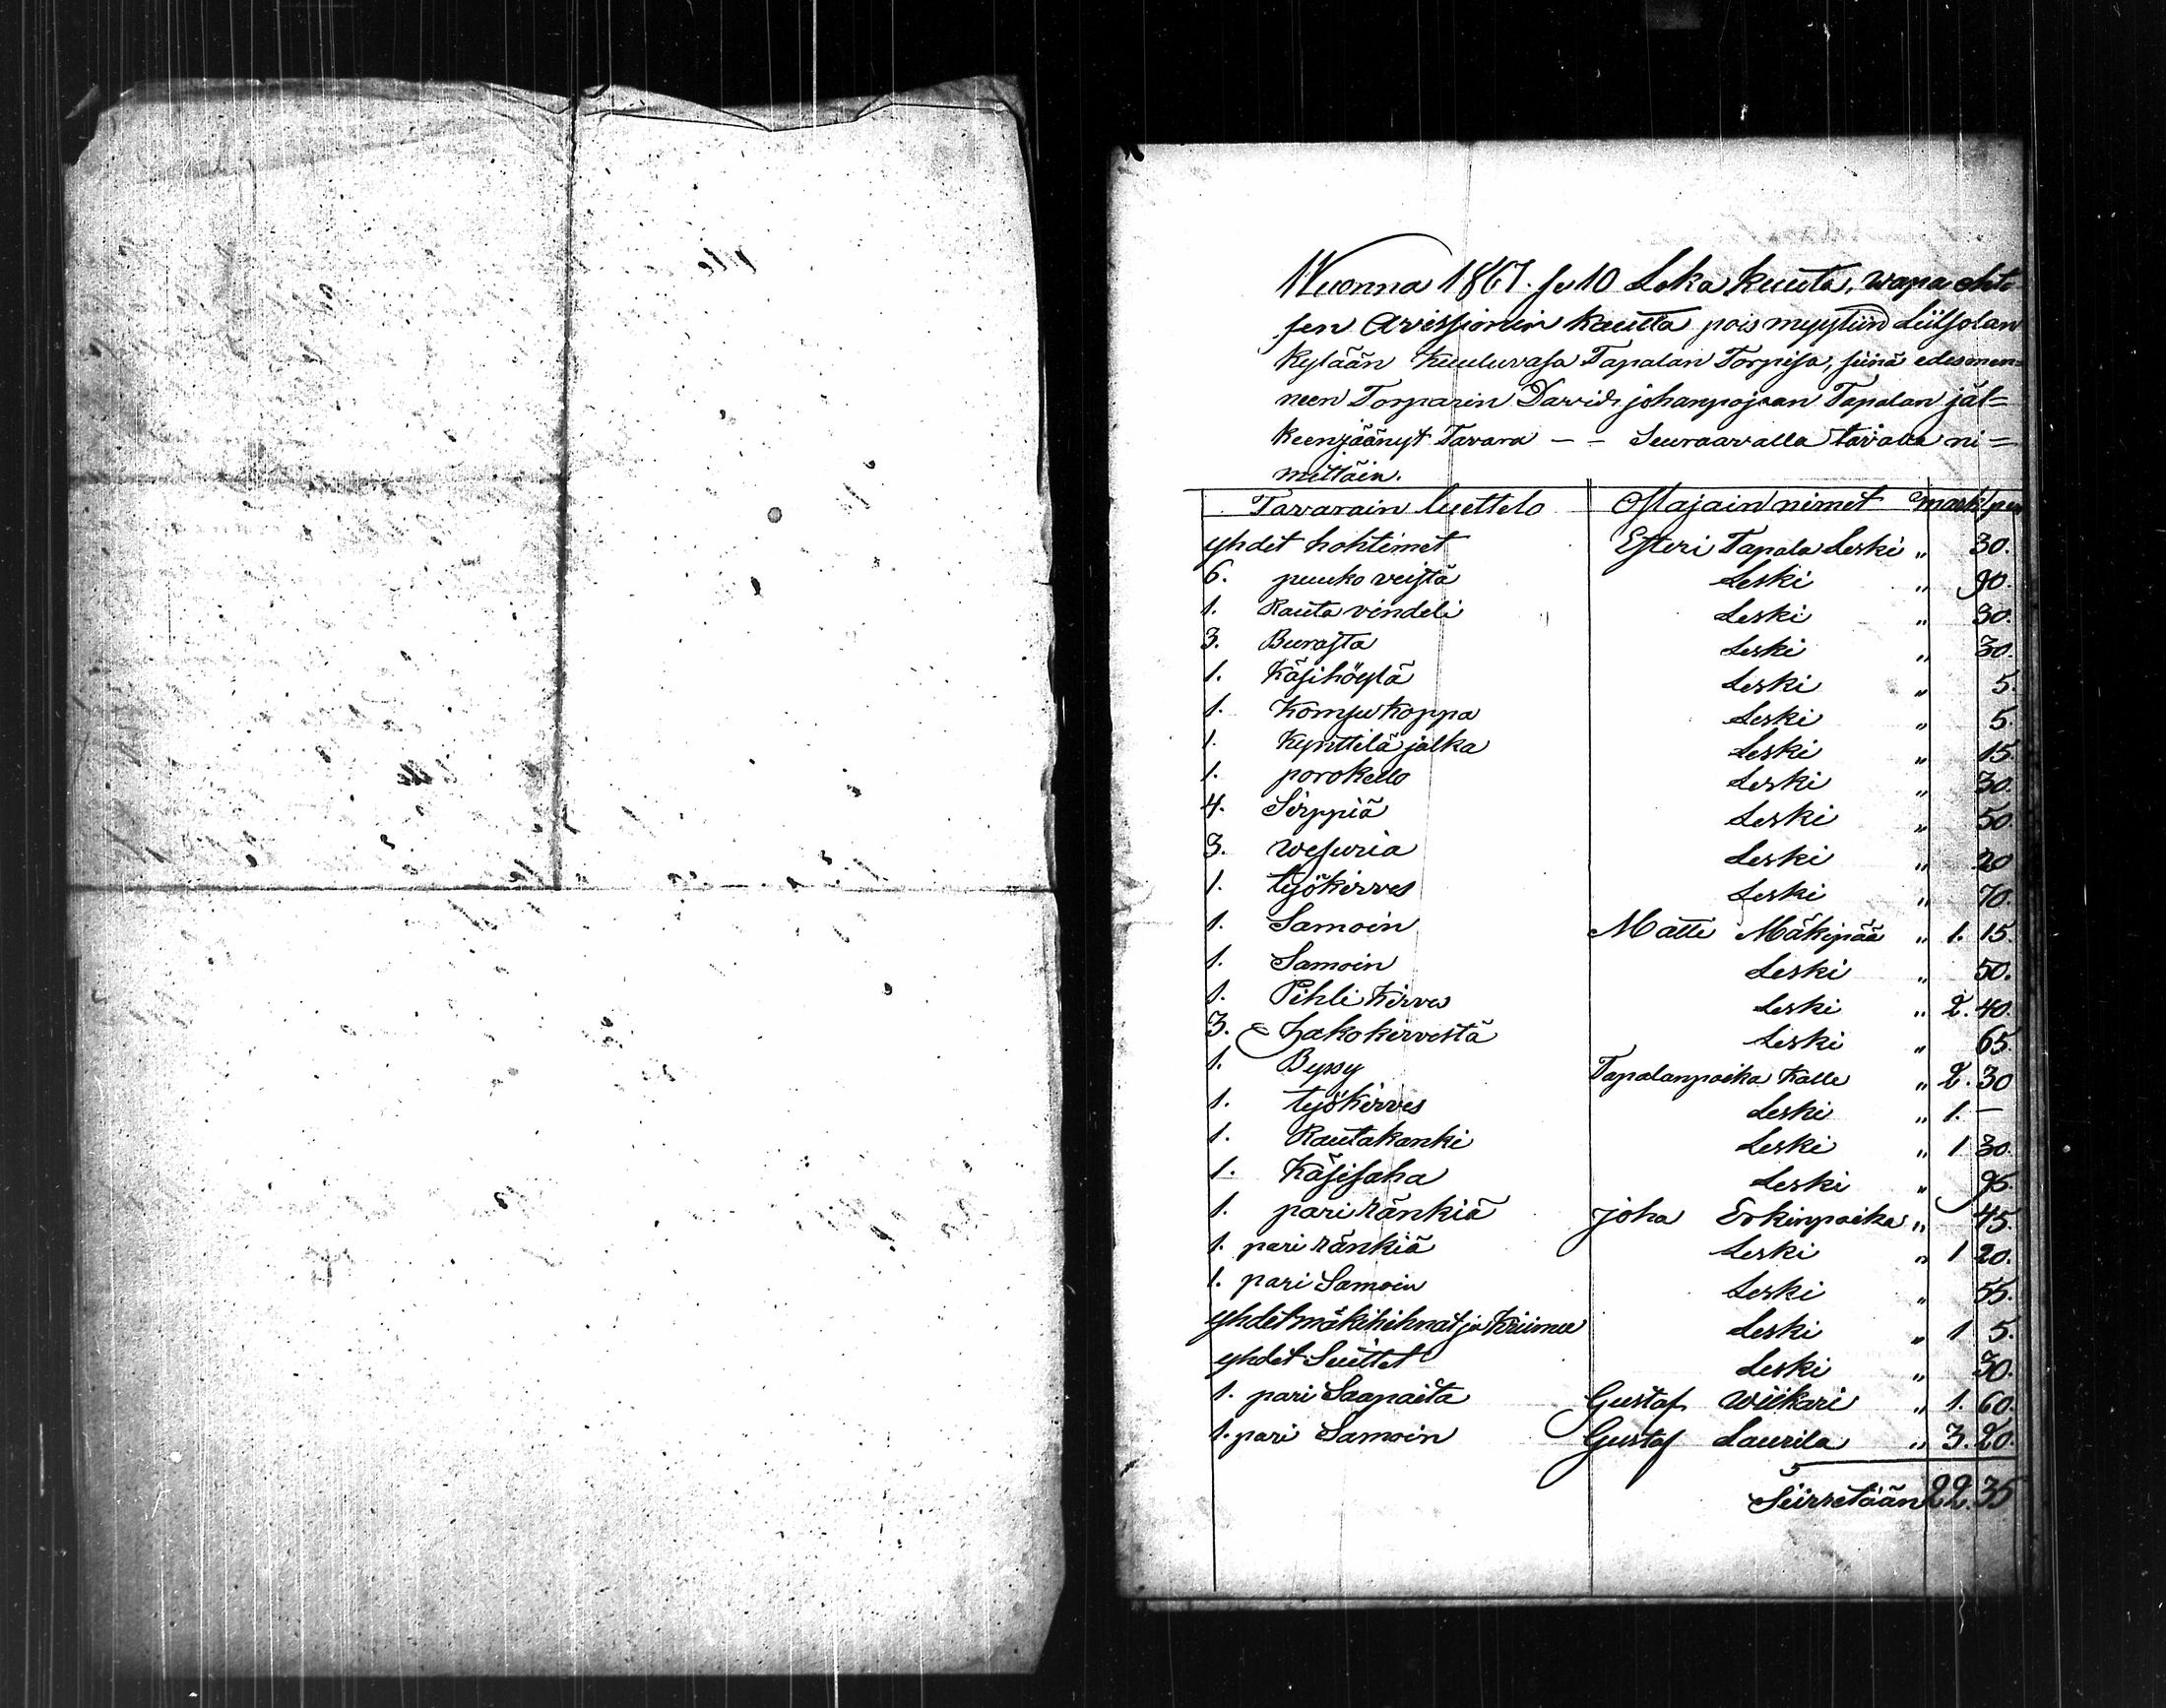 Wuonna 1867. se 10 Loka kuuta, wapa ehto-
sen Avissionin kautta pois myytiin Liitsolan
kylään kuuluvasa Tapalan Torpisa, siinä edesmen=
neen Torparin David johanpojaan Tapalan jäl=
keenjäänyt Tavara – – Seuraavalla tavalla ni=
mittäin.
Tavarain luettelo Ostajain nimet mark pen
yhdet hohtimet Esteri Tapala Leski „ 30.
6. puukoveistä Leski „ 90.
1. Rauta vindeli Leski „ 30.
3. Burasta Leski „ 30.
1. Käsihöylä Leski „ 5.
1. Komsu koppa Leski „ 5.
1. Kynttilä jalka Leski „ 15.
1. porokello Leski „ 30.
4. Sirppiä Leski „ 50.
3. wesuria Leski „ 20
1. työkirves Leski „ 70.
1. Samoin Matti Mäkipää „ 1. 15.
1. Samoin Leski „ 50.
1. Pihli Kirves Leski „ 2. 40.
3. hakokirvestä Leski „ 65.
1. Byssy Tapalanpoika Kalle „ 2. 30
1. työkirves Leski „ 1. –
1. Rautakanki Leski „ 1 30.
1. Käsisaha Leski „ 95.
1. pari ränkiä joha Erkinpoika „ 45.
1. pari ränkiä Leski „ 1 20.
1. pari Samoin Leski „ 55.
yhdet mäkihihnat ja Kriimu Leski „ 1 5.
yhdet Suittet Leski „ 30.
1. pari Saapaita Gustaf Wiikari „ 1. 60.
1. pari Samoin Gustaf Laurila „ 3. 20.
Siirretään 22. 35